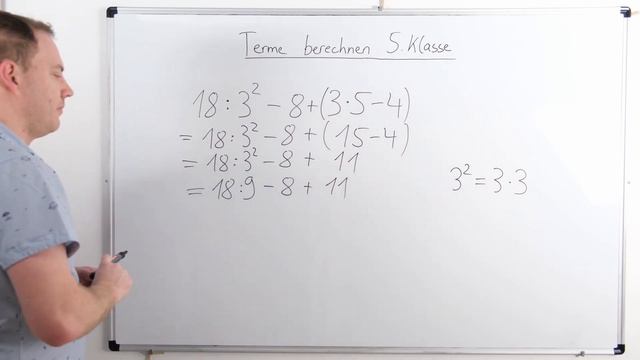 Terme berechnen 5. Klasse
18 : 3² - 8 + (3 · 5 - 4)
= 18 : 3² - 8 + (15 - 4)
= 18 : 3² - 8 + 11
= 18 : 9 - 8 + 11
3² = 3 · 3